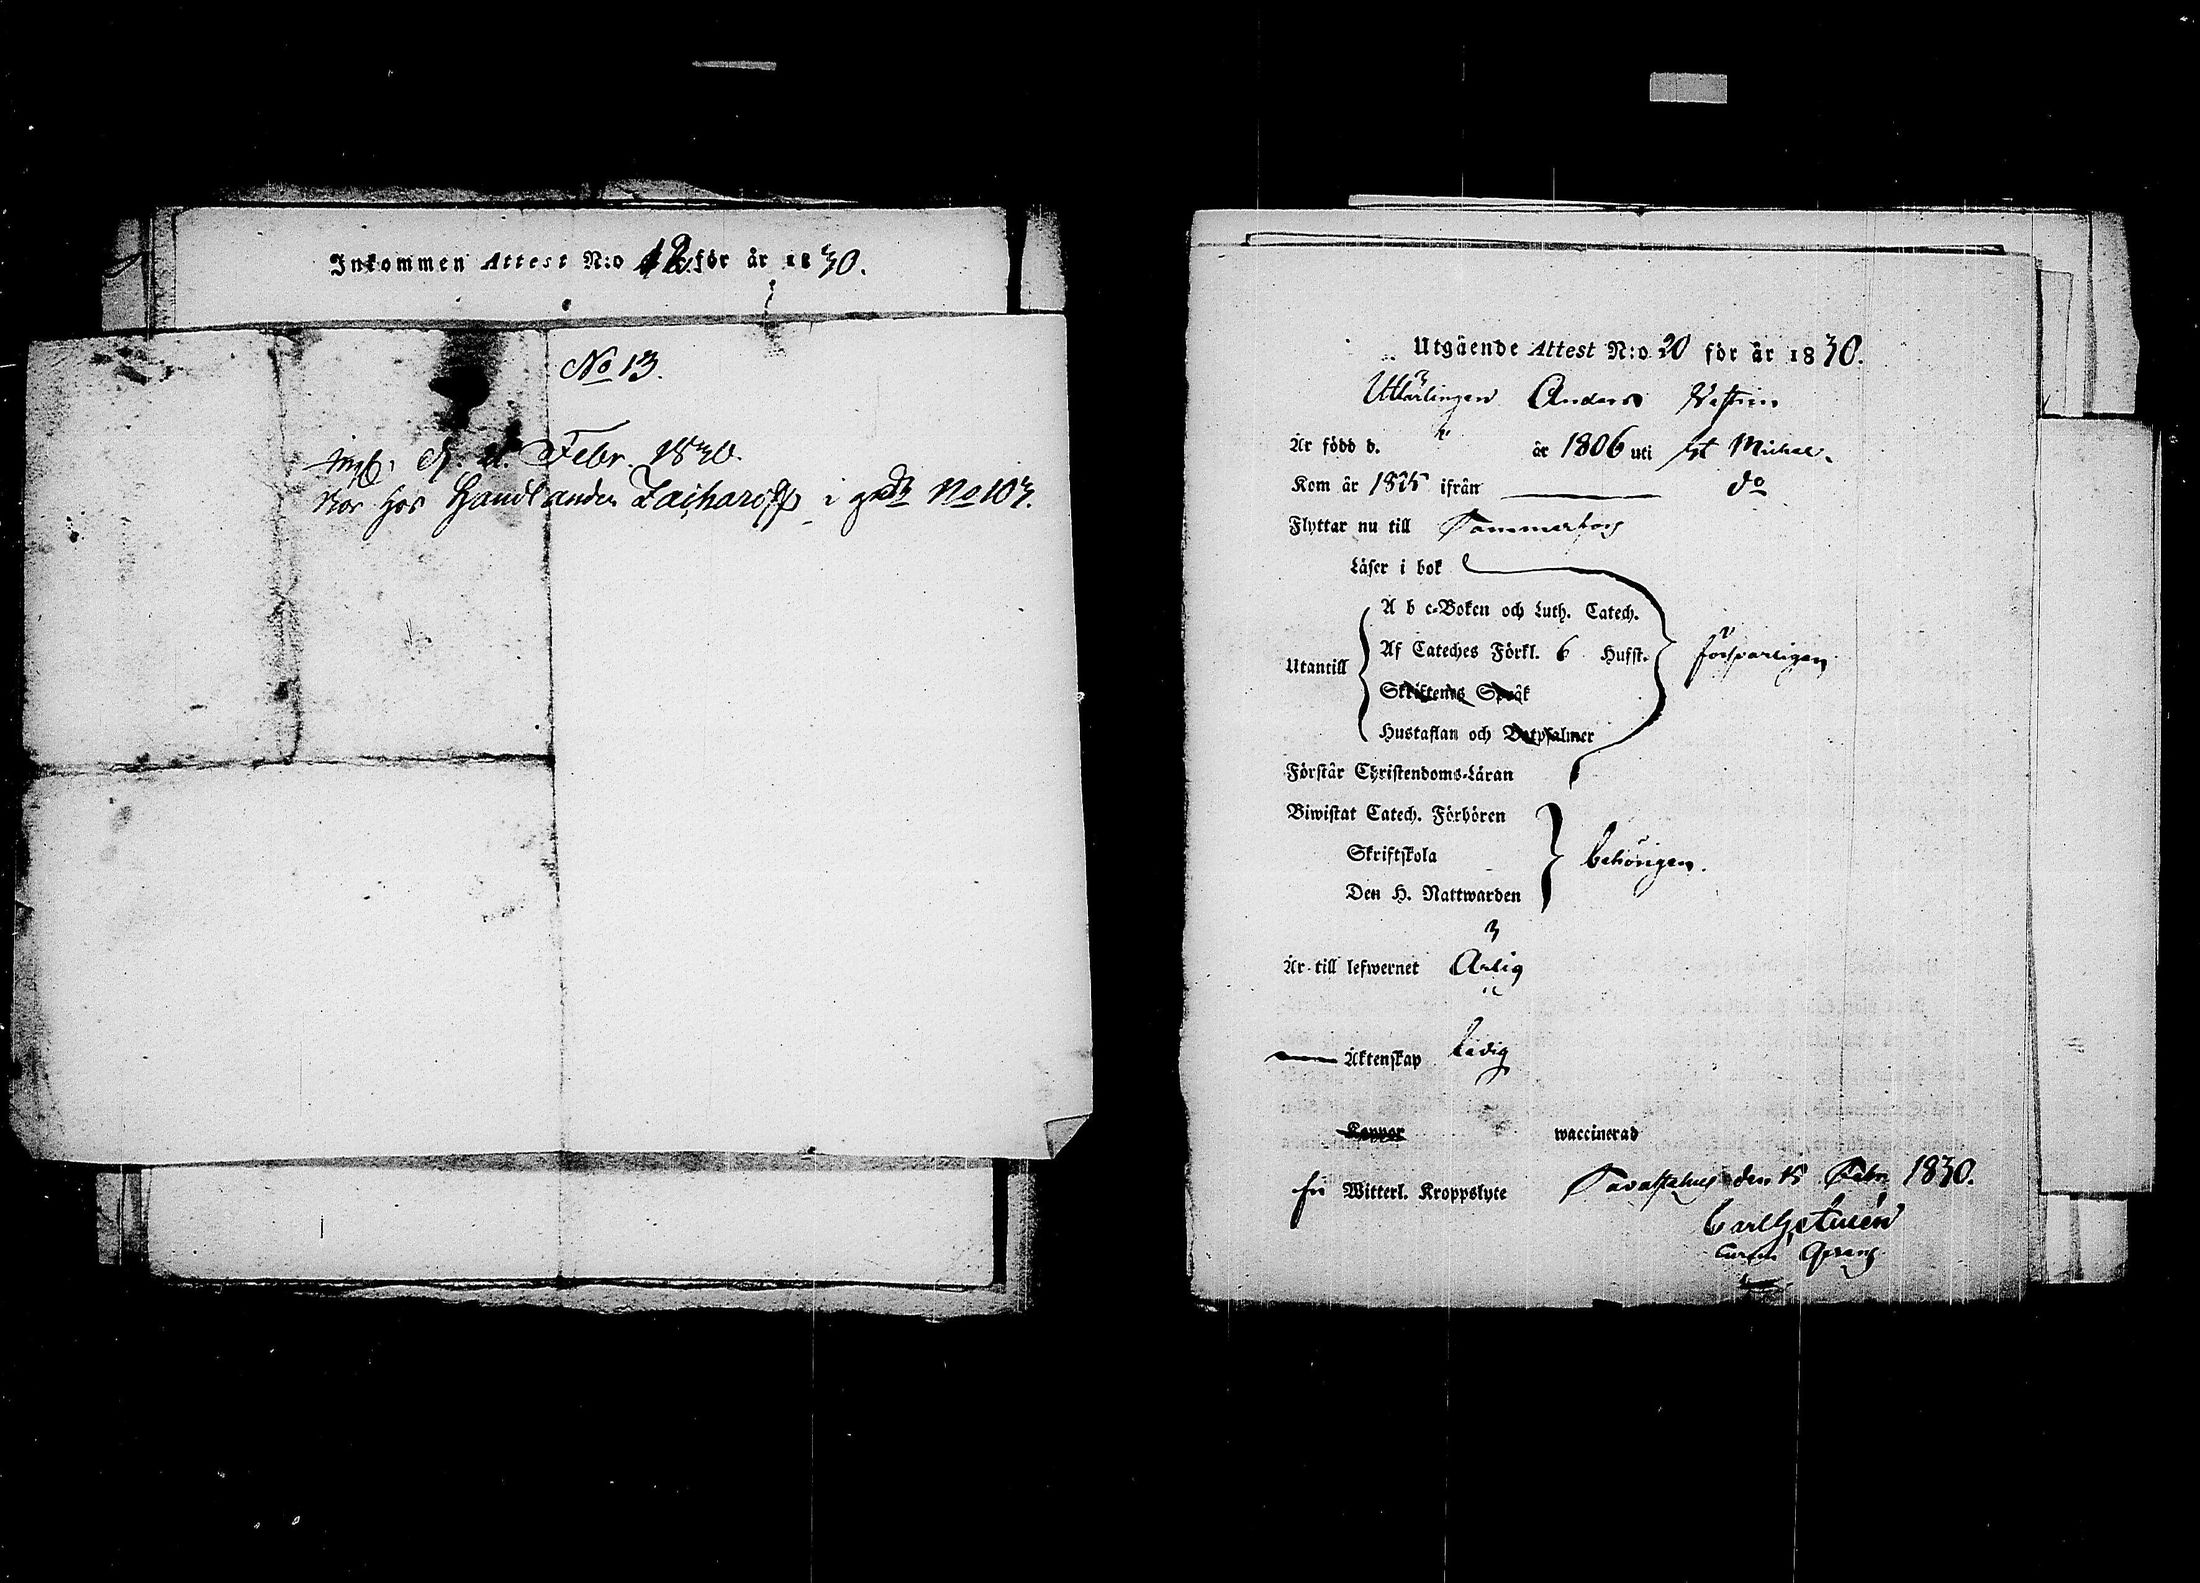 Inkommen Attest N:o 12 för år 1830.
No 13.
d. Febr. 1830.
bor hos Handlanden Zacharoff i grd No 103.
Utgående Attest N:o 20 för år 1830.
Anders
Är född d. " år 1806 uti St Michel
Kom år 1825 ifrån do
Flyttar nu till Tammerfors
Läser i bok
Utantill
A b c-Boken och Luth. Catech.
Af Cateches Förkl. 6 Hufst.
försvarligen
Skriftenes Språk
Hustaflan och Botpsalmer
Förstår Christendoms-Läran
Biwistat Catech. Förhören
Skriftskola
behörigen.
Den H. Nattwarden
Är till lefwernet Ärlig
Äktenskap ledig
Koppor waccinerad
fri Witterl. Kroppslyte Tavastehus den 15 Febr 1830.
Carl